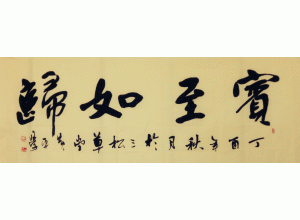 賓至如歸
丁酉年秋月於三松草堂